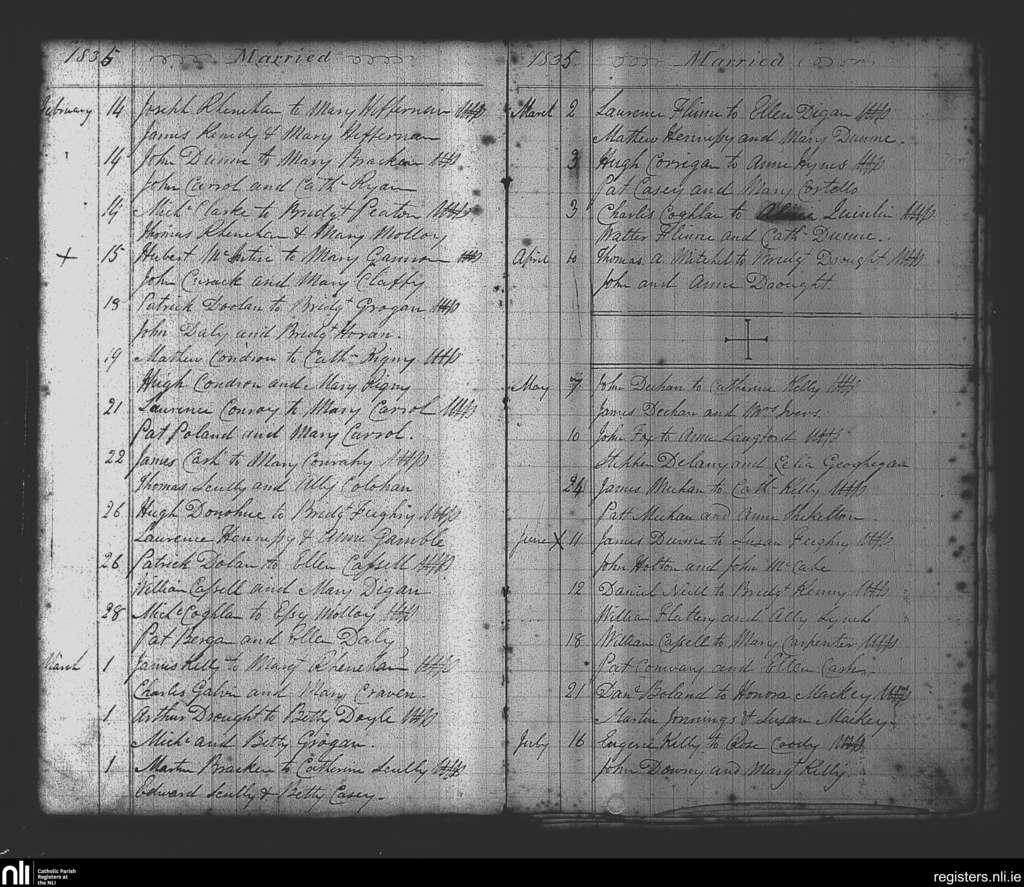 1835 Married
February 14 Joseph Rhenehan to Mary Heffernan
James Kenedy & Mary Heffernan
14 John Dunne to Mary Bracken
John Carrol and Cath. Ryan
14 Michl Clarke to Bridgt Peaton
Thomas Rhenehan & Mary Molloy
15 Hubert to Mary Gannon
John Cusack and Mary Claffy
18 Patrick Doolan to Bridgt Grogan
John Daly and Bridgt Horan.
19 Mathew Condron to Cath. Rigny
Hugh Condron and Mary Rigny
21 Laurence Conroy to Mary Carrol
Pat Poland and Mary Carrol.
22 James Cash to Mary Conrahy
Thomas Scully and Ally Colohan
26 Hugh Donohue to Bridgt Feighry
Laurence Hennessy & Anne Gamble
26 Patrick Dolan to Ellen Cassell
William Cassell and Mary Digan
28 Michl Coghlan to Elsy Molloy
Pat Bergan and Ellen Daly
March 1 James Kelly to Margt Rhenehan
Charles Galvin and Mary Craven.
1 Arthur Drought to Beth Doyle
Michl and Betty Grogan.
1 Martin Bracken to Catherine Scully
Edward Scully & Betty Casey.
1835 Married
March 2 Laurence Flinne to Ellen Digan
Mathew Hennessy and Mary Dunne.
3 Hugh Corrigan to Anne Hynes
Pat Casey and Mary Costello
3 Charles Coghlan to Quinlin
Walter Flinne and Cath. Dunne.
April Thomas A. Mitchel to Bridgt Drought
John and Anne Drought.
May 7 John Deehan to Catherine Kelly
James Deehan and Mrs Ivers.
10 John Fox to Anne Langford
Stephen Delany and Celia Geoghegan
24 James Meehan to Cath. Kelly
Patt Meehan and Anne Shekelton
June 11 James Dunne to Susan Feighry
John Holton and John McCabe
12 Daniel Neill to Bridgt Kenny
William Flattery and Ally Lynch
18 William Cassell to Mary Carpenter
Pat Conway and Ellen Cash
21 Danl Boland to Honora Mackey
Martin Jennings & Susan Mackey
July 16 Eugene Kelly to Rose Coody
John Downy and Margt Kelly.
nli Catholic Parish Registers at the NLI
registers.nli.ie